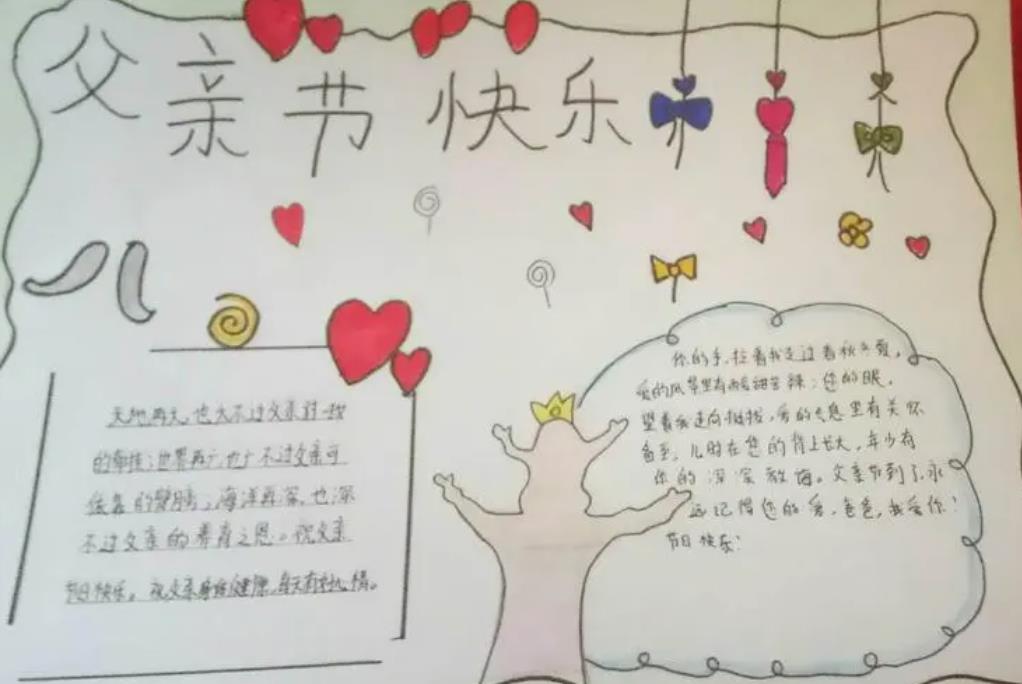 父亲节快乐
天地再大,也大不过父亲对我
的牵挂;世界再广,也广不过父亲可
依靠的臂膀;海洋再深,也深
不过父亲的养育之恩。祝父亲
节日快乐。祝父亲身体健康,每天有好心情。
你的手,拉着我走过春秋冬夏,
爱的风草里有两暖甜苦辣;您的眼,
望着我走向挺拔,爱的气息里有关怀
备至。儿时在您的背上长大,年少有
你的深深教诲。父亲节到了,永
远记得您的爱,爸爸,我爱你!
节日快乐!